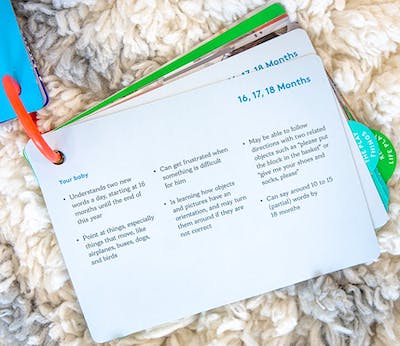 16, 17, 18 Months
16, 17, 18 Months
Your baby
• Understands two new
words a day, starting at 16
months until the end of
this year
• Point at things, especially
things that move, like
airplanes, buses, dogs,
and birds
• Can get frustrated when
something is difficult
for him
• Is learning how objects
and pictures have an
orientation, and may turn
them around if they are
not correct
• May be able to follow
directions with two related
objects such as "please put
the block in the basket" or
"give me your shoes and
socks, please"
• Can say around 10 to 15
(partial) words by
18 months
THE PLAY
THINGS
LIFE